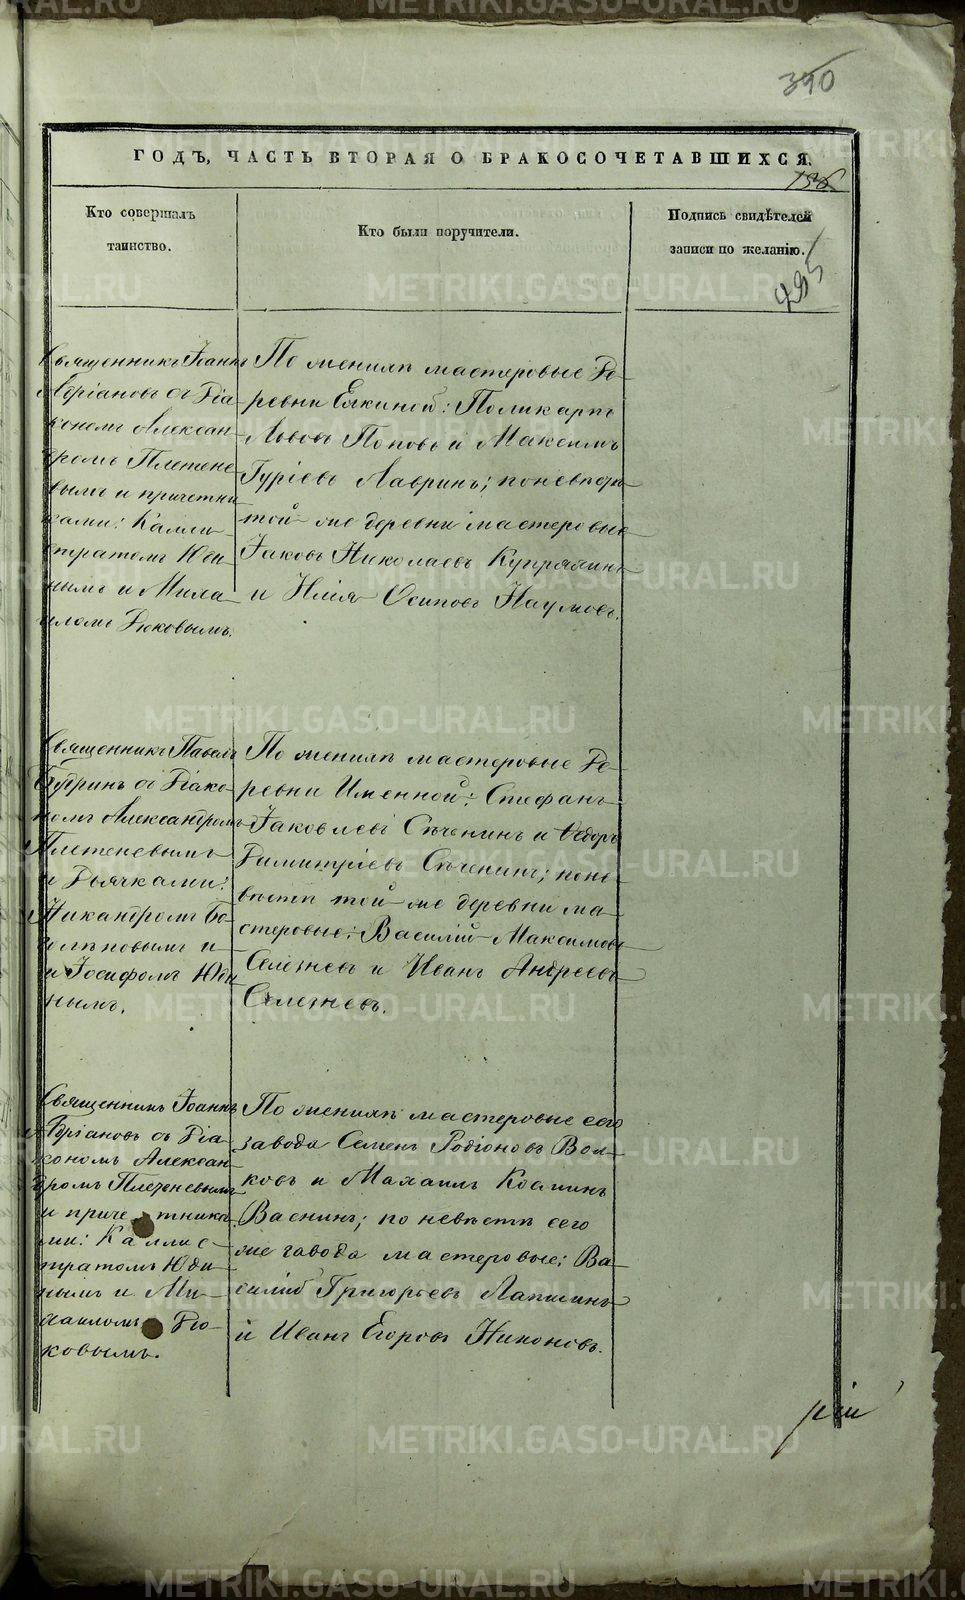 390
ГОДЪ, ЧАСТЬ ВТОРАЯ О БРАКОСОЧЕТАВШИХСЯ.
Кто совершалъ
таинство.
Кто были поручители.
Подпись свидѣтелей
записи по желанію.
295
Священникъ Іоаннъ
Адріановъ съ Діа-
кономъ Алексан-
дромъ Плетене-
вымъ и причетни-
ками: Калли-
стратомъ Юди-
нымъ и Миха-
иломъ Рюковымъ.
По женихѣ мастеровые Де-
ревни Елкиной: Поликарпъ
Львовъ Поповъ и Максимъ
Гуріевъ Лавринъ; по невѣстѣ
той же деревни мастеровые
Іаковъ Николаевъ Купряхинъ
и Илія Осиповъ Наумовъ.
Священникъ Павелъ
съ Діако-
номъ Александромъ
Плетеневымъ
и Дьячками:
Никандромъ Бо-
и
и Іосифомъ Юди-
нымъ.
По женихѣ мастеровые Де-
ревни Именной: Стефанъ
Іаковлевъ Сѣченинъ и Ѳедоръ
Димитріевъ Сѣченинъ; по не-
вѣстѣ той же деревни ма-
стеровые: Василій Максимовъ
Селезневъ и Иванъ Андреевъ
Селезневъ.
Священникъ Іоаннъ
Адріановъ съ Діа-
кономъ Алексан-
дромъ Плетеневымъ
и причетника-
ми: Каллис-
тратомъ Юди-
нымъ и Ми-
хаиломъ Рю-
ковымъ.
По женихѣ мастеровые сего
завода Семенъ Родіоновъ Вол-
ковъ и Михаилъ Козминъ
Васнинъ; по невѣстѣ сего
же завода мастеровые: Ва-
силій Григорьевъ Лапшинъ
и Иванъ Егоровъ Никоновъ.
рій
METRIKI.GASO-URAL.RU